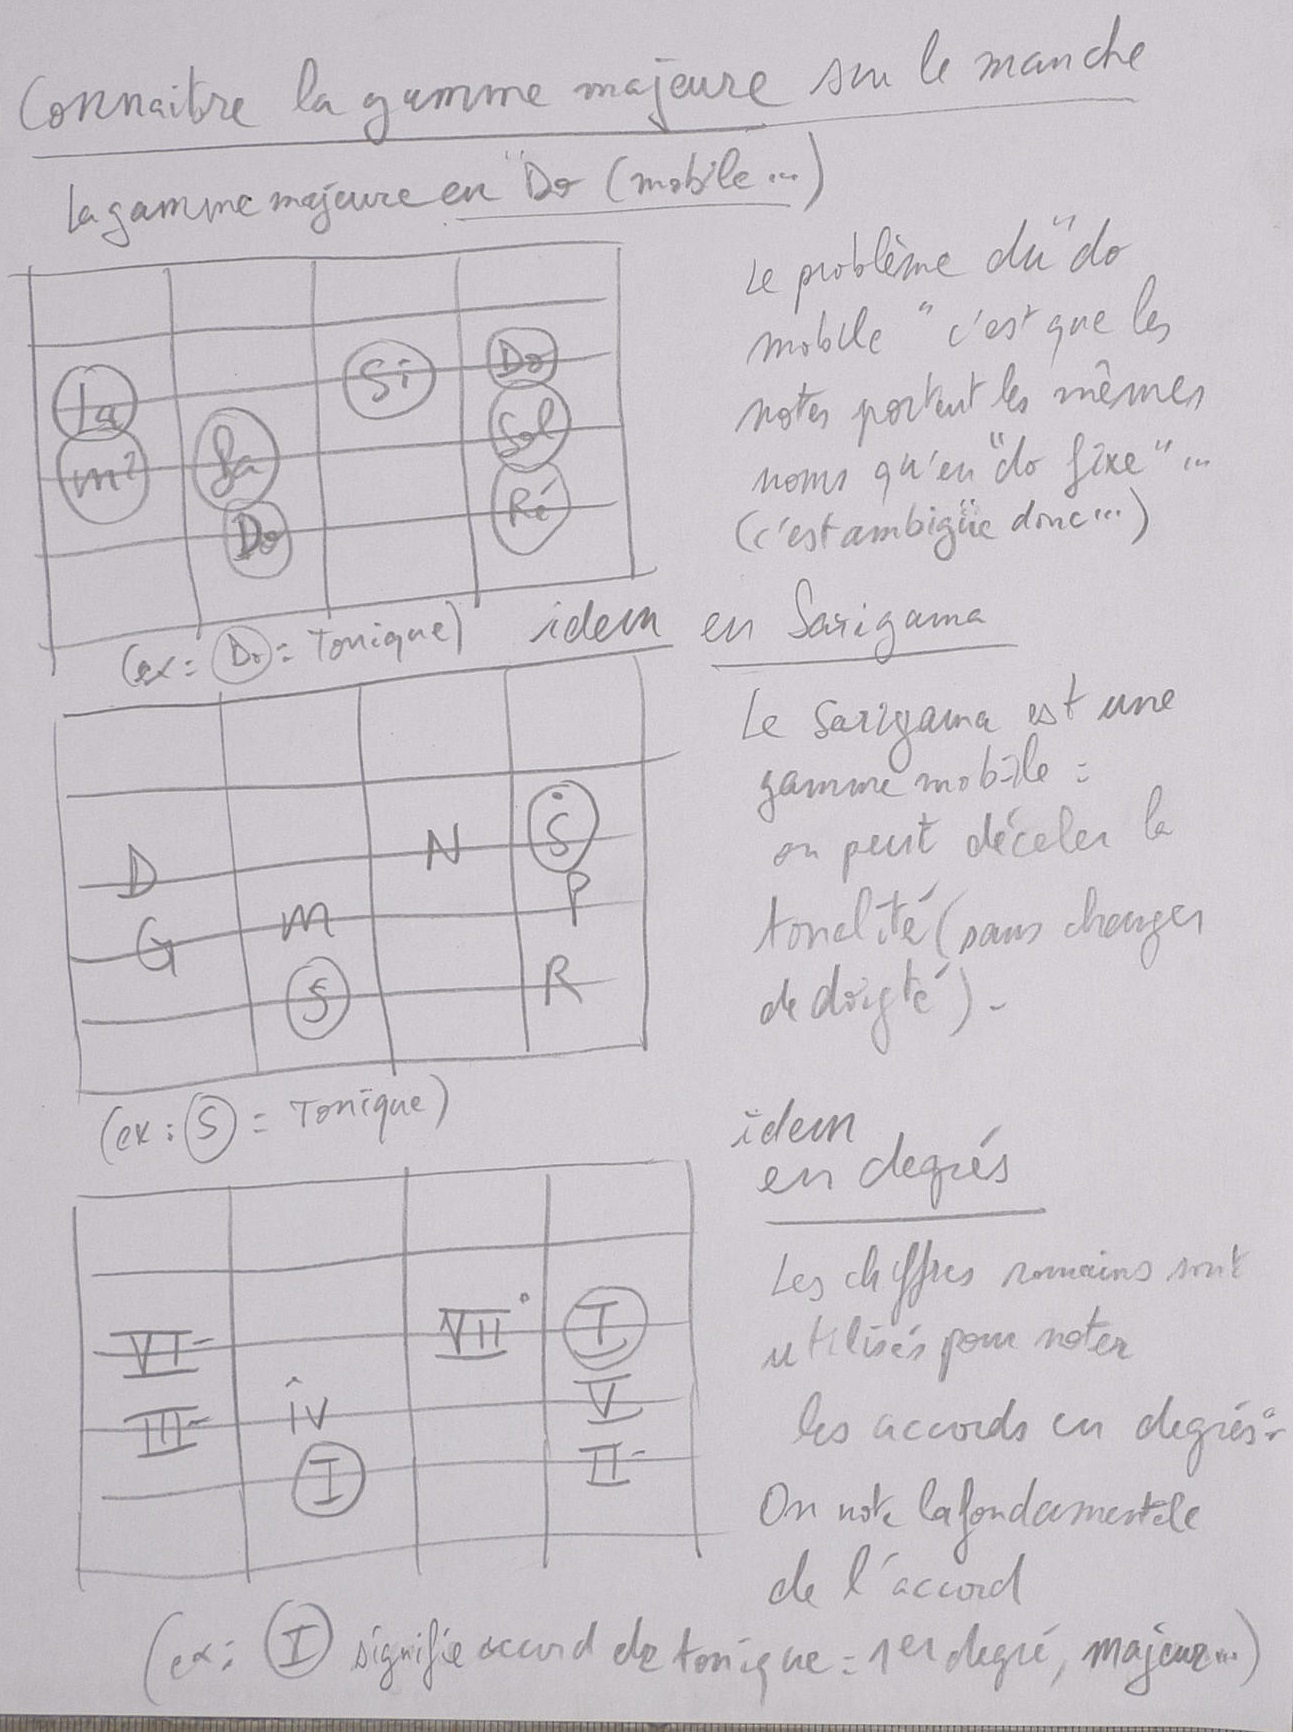 Connaitre la gamme majeure sur le manche
La gamme majeure en "Do (mobile...)
Le problème du "do
mobile" c'est que les
notes portent les mêmes
noms qu'en "do fixe"...
(c'est ambigüe donc...)
La Si Do
mi Fa Sol
Do Ré
(ex: Do = Tonique)
idem en Sarigama
Le Sarigama est une
gamme mobile :
on peut déceler la
tonalité (sans changer
de doigté).
D N Ṡ
G m P
S R
(ex : S = Tonique)
idem
en degrés
Les chiffres romains sont
utilisés pour noter
les accords en degrés :
On note la fondamentale
de l'accord
VI- VII° I
III- iv V
I II-
(ex: I signifie accord de tonique = 1er degré, majeur...)